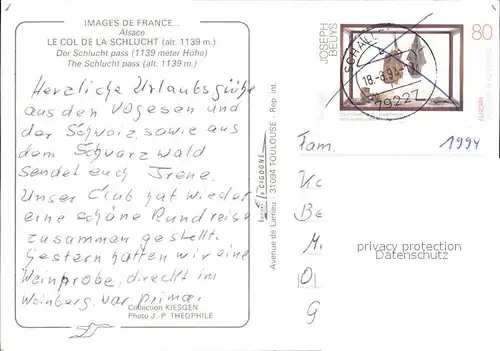 IMAGES DE FRANCE...
Alsace
LE COL DE LA SCHLUCHT (alt. 1139 m.)
Der Schlucht pass (1139 meter Höhe)
The Schlucht pass (alt. 1139 m.)
Herzliche Urlaubsgrüße
aus den Vogesen und
der Schweiz, sowie aus
dem Schwarzwald
sendet euch Irene.
Unser Club hat wieder
eine schöne Rundreise
zusammen gestellt.
Gestern hatten wir eine
Weinprobe, direckt im
Weinberg. War prima.
Collection KIESGEN
Photo J.-P. THÉOPHILE
Avenue de Larrieu - 31094 TOULOUSE - Rep. int.
JOSEPH
BEUYS
80
EUROPA
79227
Fam.
1994
privacy protection
Datenschutz